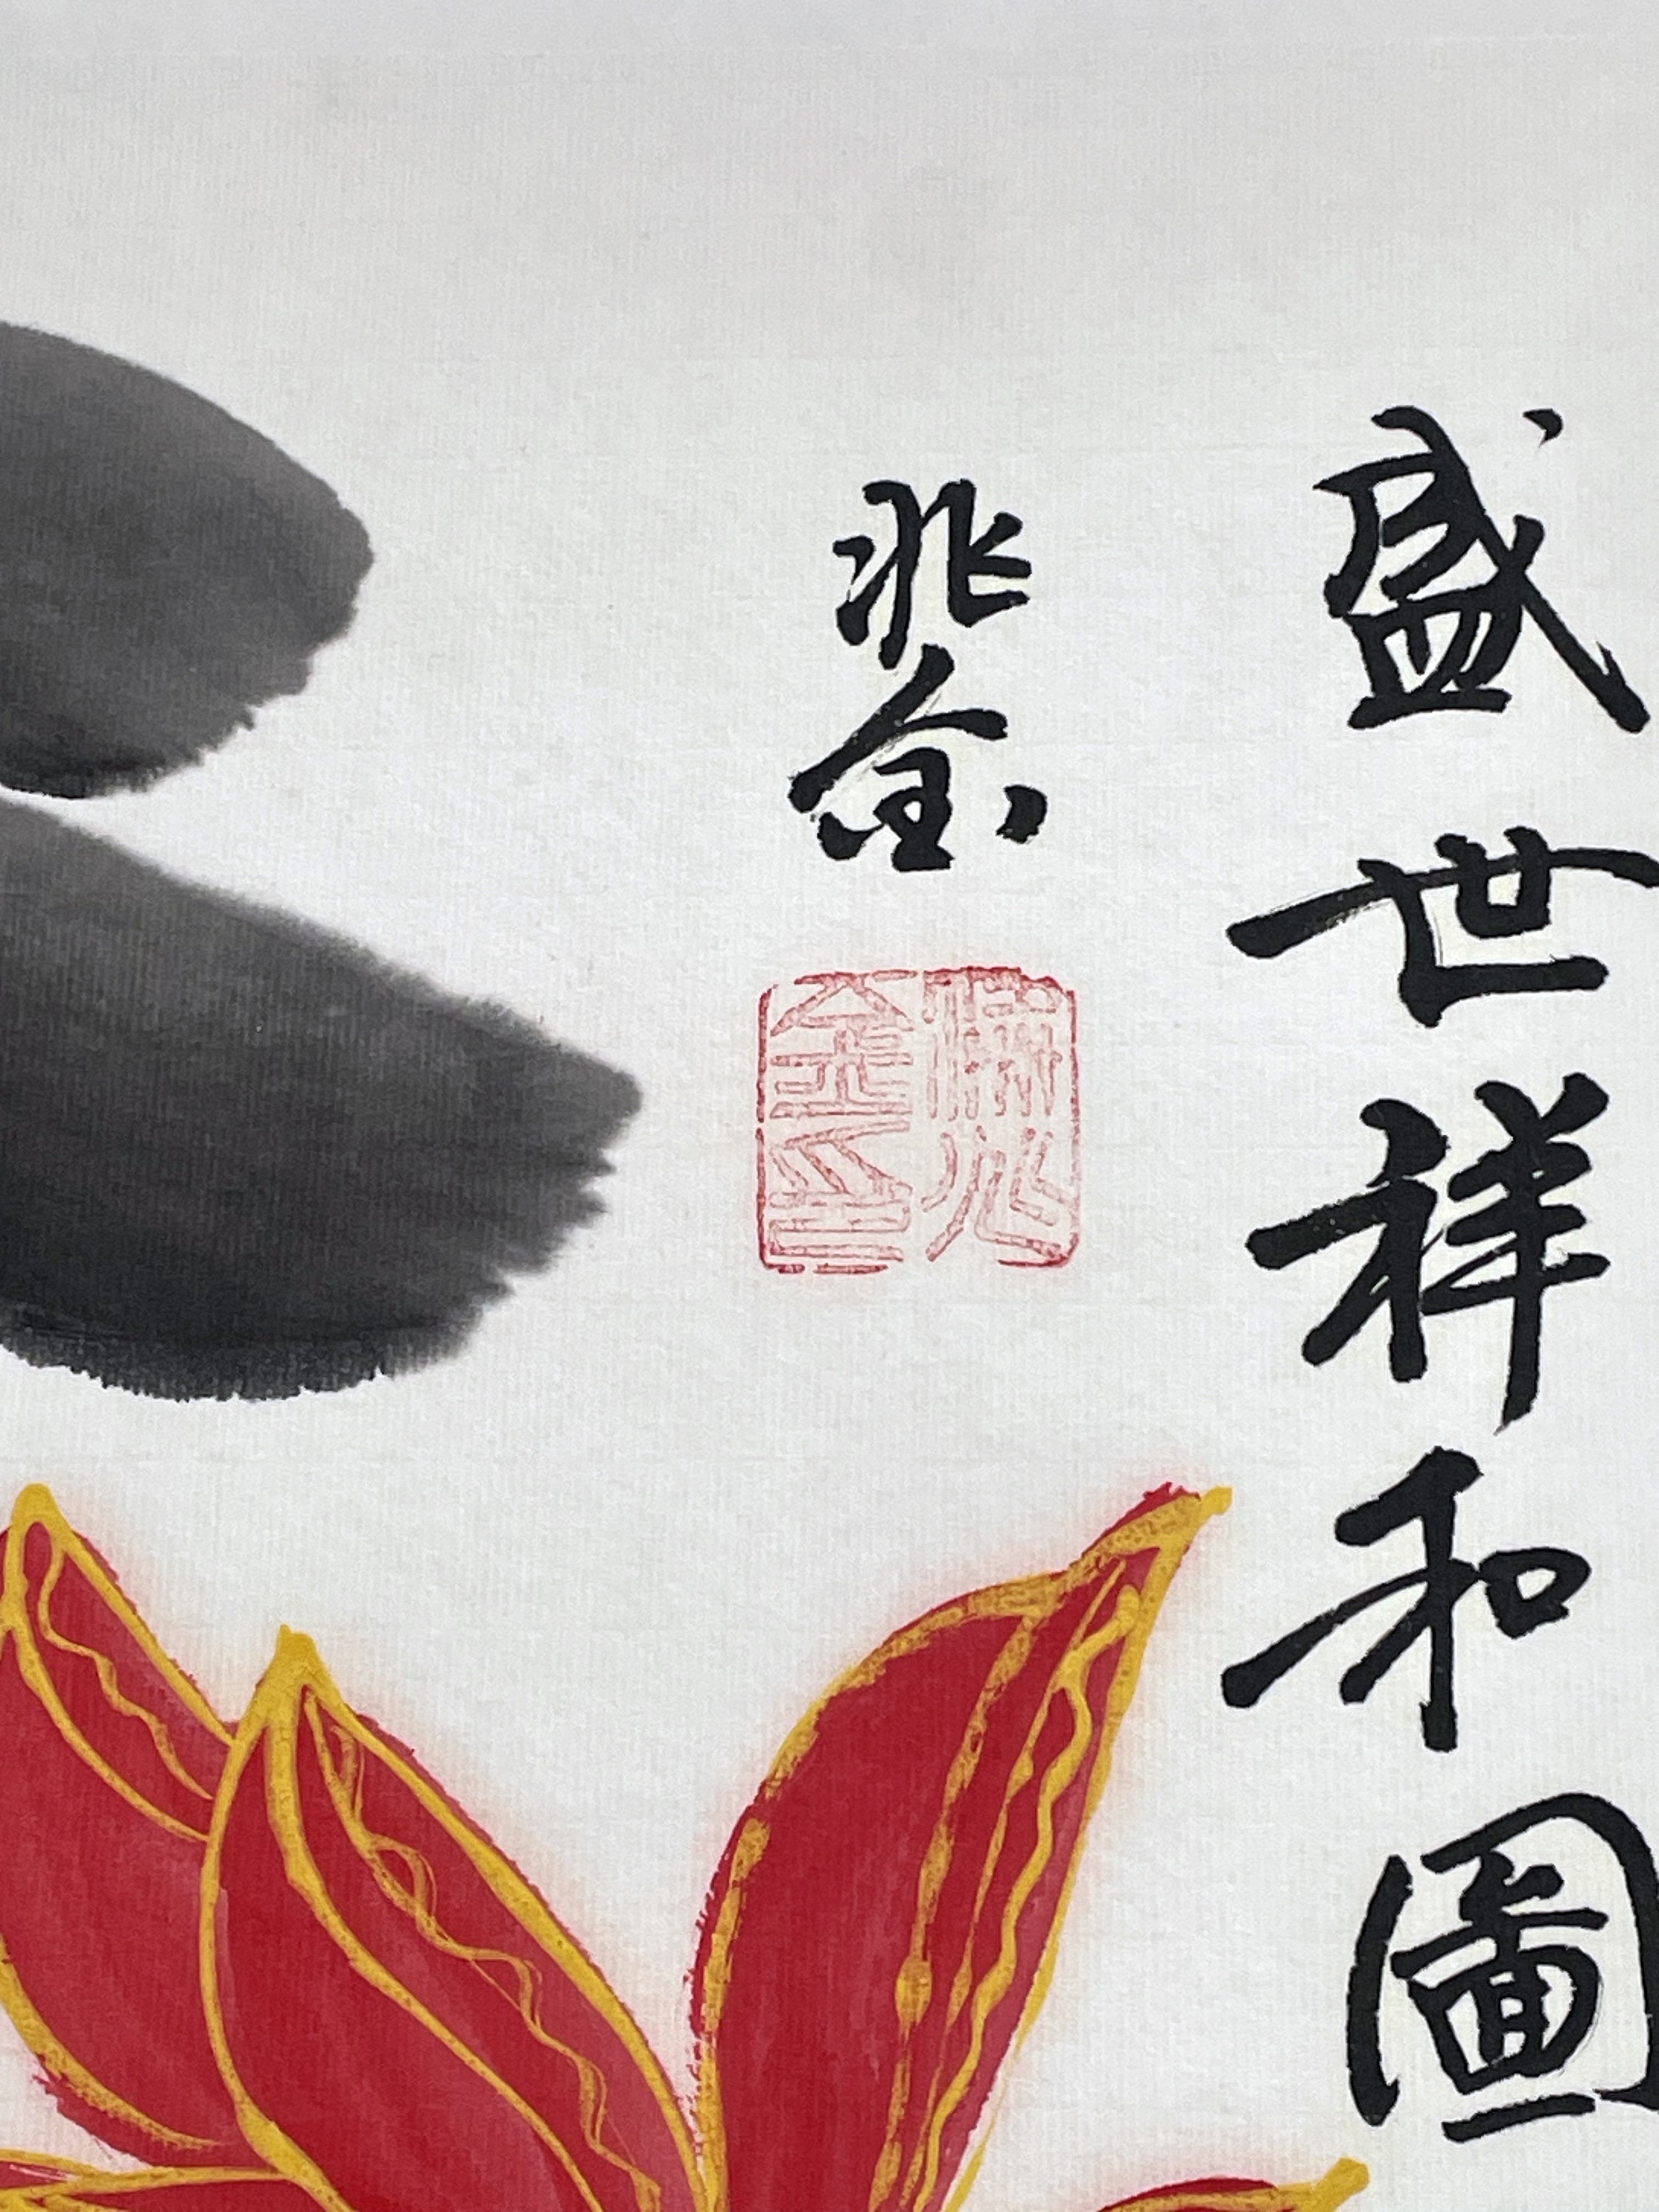 盛世祥和圖
兆金